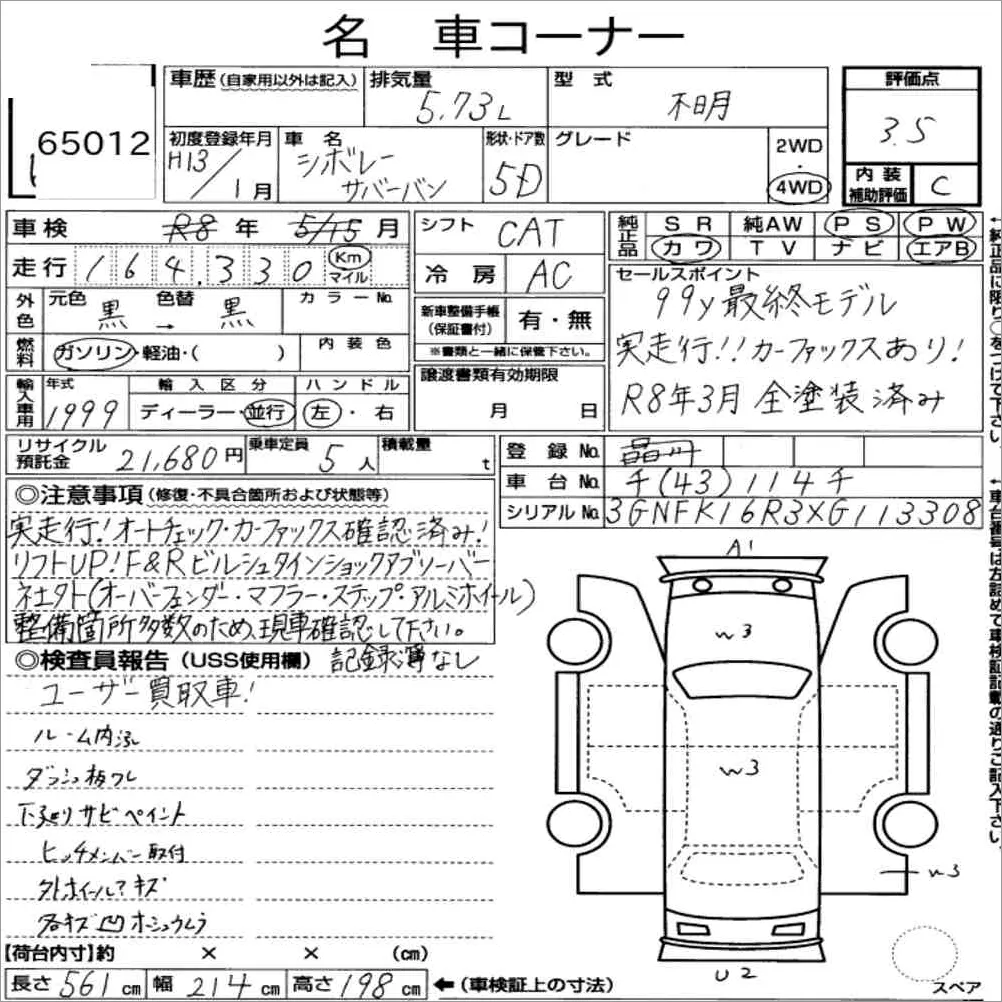 名 車コーナー
65012
車歴(自家用以外は記入)
排気量
5.73L
型式
不明
評価点
3.5
初度登録年月
H13/1月
車名
シボレー
サバーバン
形状・ドア数
5D
グレード
2WD
・
4WD
内装
補助評価
C
車検 R8年 5/15月
シフト CAT
純正品
SR 純AW PS PW
カワ TV ナビ エアB
走行 164,330 Km マイル
冷房 AC
外色
元色 黒 → 色替 黒
カラーNo.
新車整備手帳
(保証書付)
有・無
※書類と一緒に保管下さい。
セールスポイント
99y最終モデル
実走行!!カーファックスあり!
R8年3月 全塗装済み
燃料
ガソリン・軽油・( )
内装色
輸入車用
年式
1999
輸入区分
ディーラー・並行
ハンドル
左・右
譲渡書類有効期限
月 日
リサイクル
預託金
21,680円
乗車定員
5人
積載量
t
登録No.
車台No. 千(43)114千
シリアルNo. 3GNFK16R3XG113308
◎注意事項(修復・不具合箇所および状態等)
実走行!オートチェック・カーファックス確認済み!
リフトUP!F&Rビルシュタインショックアブソーバー
社外(オーバーフェンダー・マフラー・ステップ・アルミホイール)
整備箇所多数のため、現車確認して下さい。
◎検査員報告(USS使用欄) 記録簿なし
ユーザー買取車!
ルーム内
ダッシュ板フレ
下廻りサビペイント
ヒッチメンバー取付
外ホイールキズ
各キズ凹
A1
W3
W3
W3
U2
スペア
【荷台内寸】約 × × (cm)
長さ 561cm 幅 214cm 高さ 198cm ←(車検証上の寸法)
←純正品に限り○をつけて下さい
←車台番号は左詰めで車検証記載の通りご記入下さい。